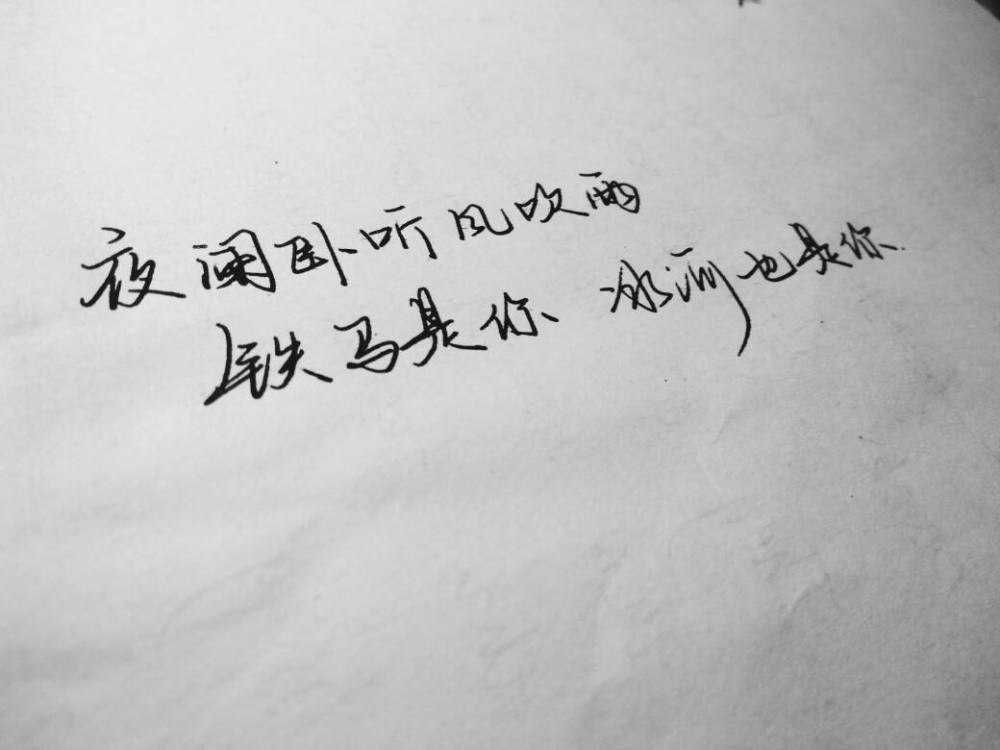 夜澜卧听风吹雨
铁马是你 冰河也是你